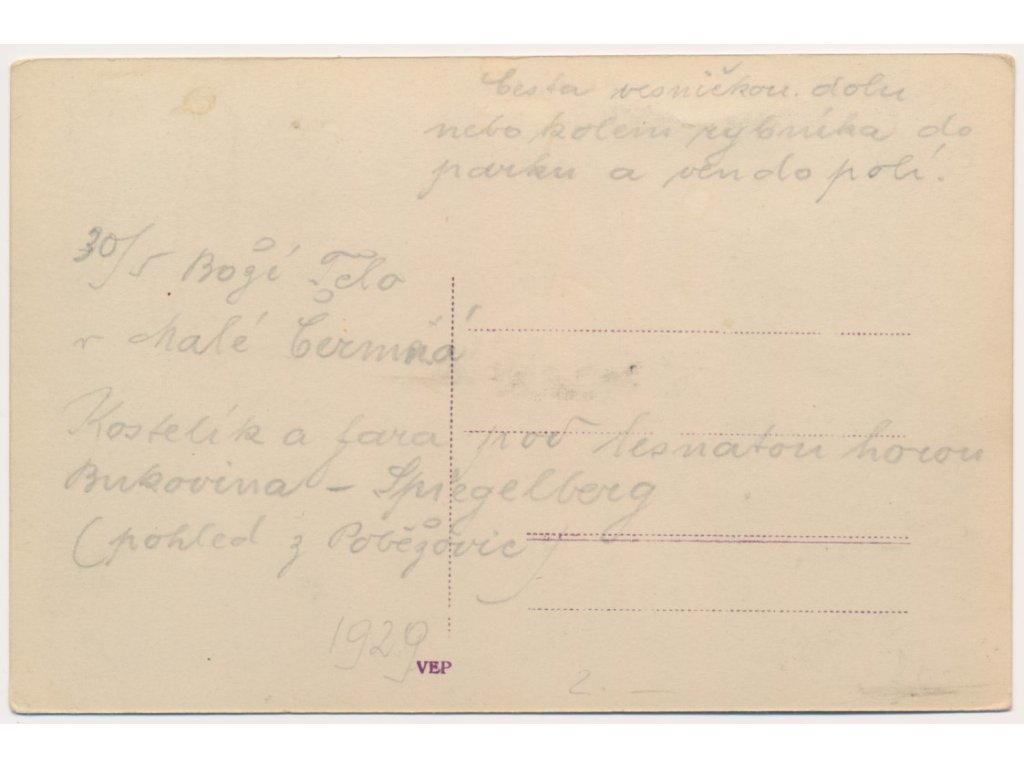 Cesta vesničkou dolu
nebo kolem rybníka do
parku a ven do polí.
30/5 Boží Tělo
v Malé Čermná
Kostelík a fara pod lesnatou horou
Bukovina – Spiegelberg
(pohled z Poběžovic)
1929
VEP
2.—